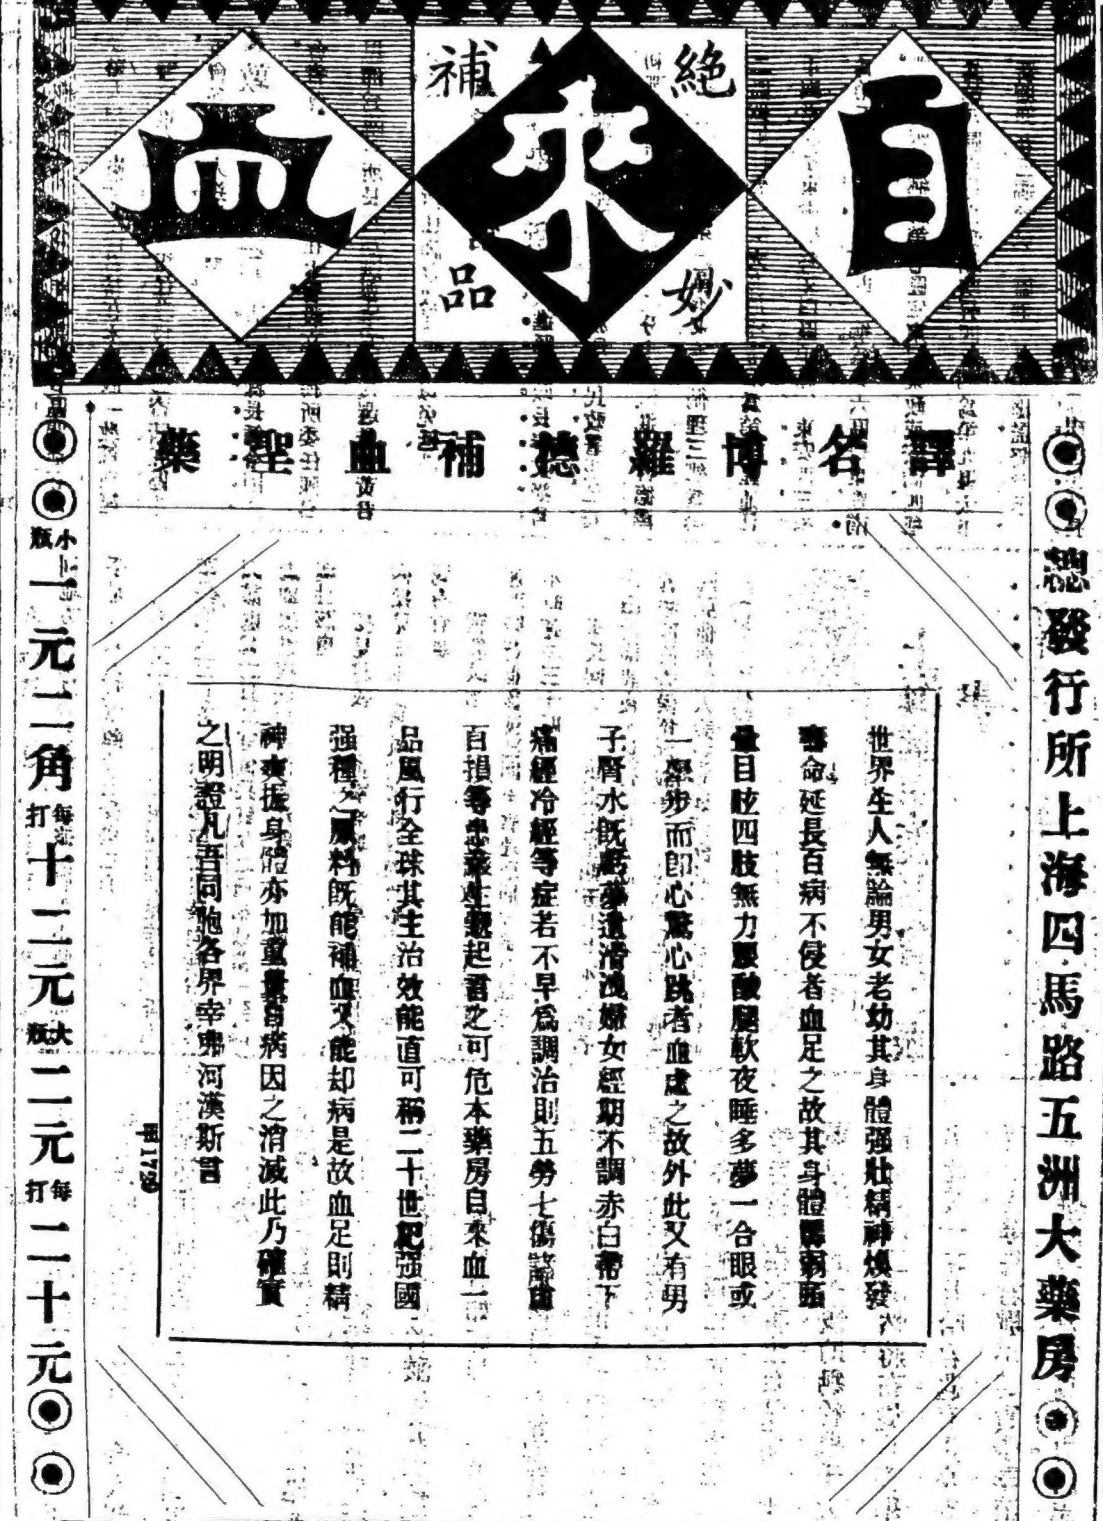 自來血
絕妙補品
譯名博羅德補血聖藥
總發行所上海四馬路五洲大藥房
世界生人無論男女老幼其身體强壯精神煥發
壽命延長百病不侵者血足之故其身體孱弱頭
暈目眩四肢無力腰酸腿軟夜睡多夢一合眼或
一舉步而卽心驚心跳者血虛之故外此又有男
子腎水旣虧夢遺滑洩婦女經期不調赤白帶下
痛經冷經等症若不早爲調治則五勞七傷諸虛
百損等患叢生觀起言之可危本藥房自來血一
品風行全球其主治效能直可稱二十世紀强國
强種之原料旣能補血又能却病是故血足則精
神爽振身體亦加重舊病因之消滅此乃確實
之明證凡吾同胞各界幸弗河漢斯言
甲172
小瓶一元二角每打十二元大瓶二元每打二十元